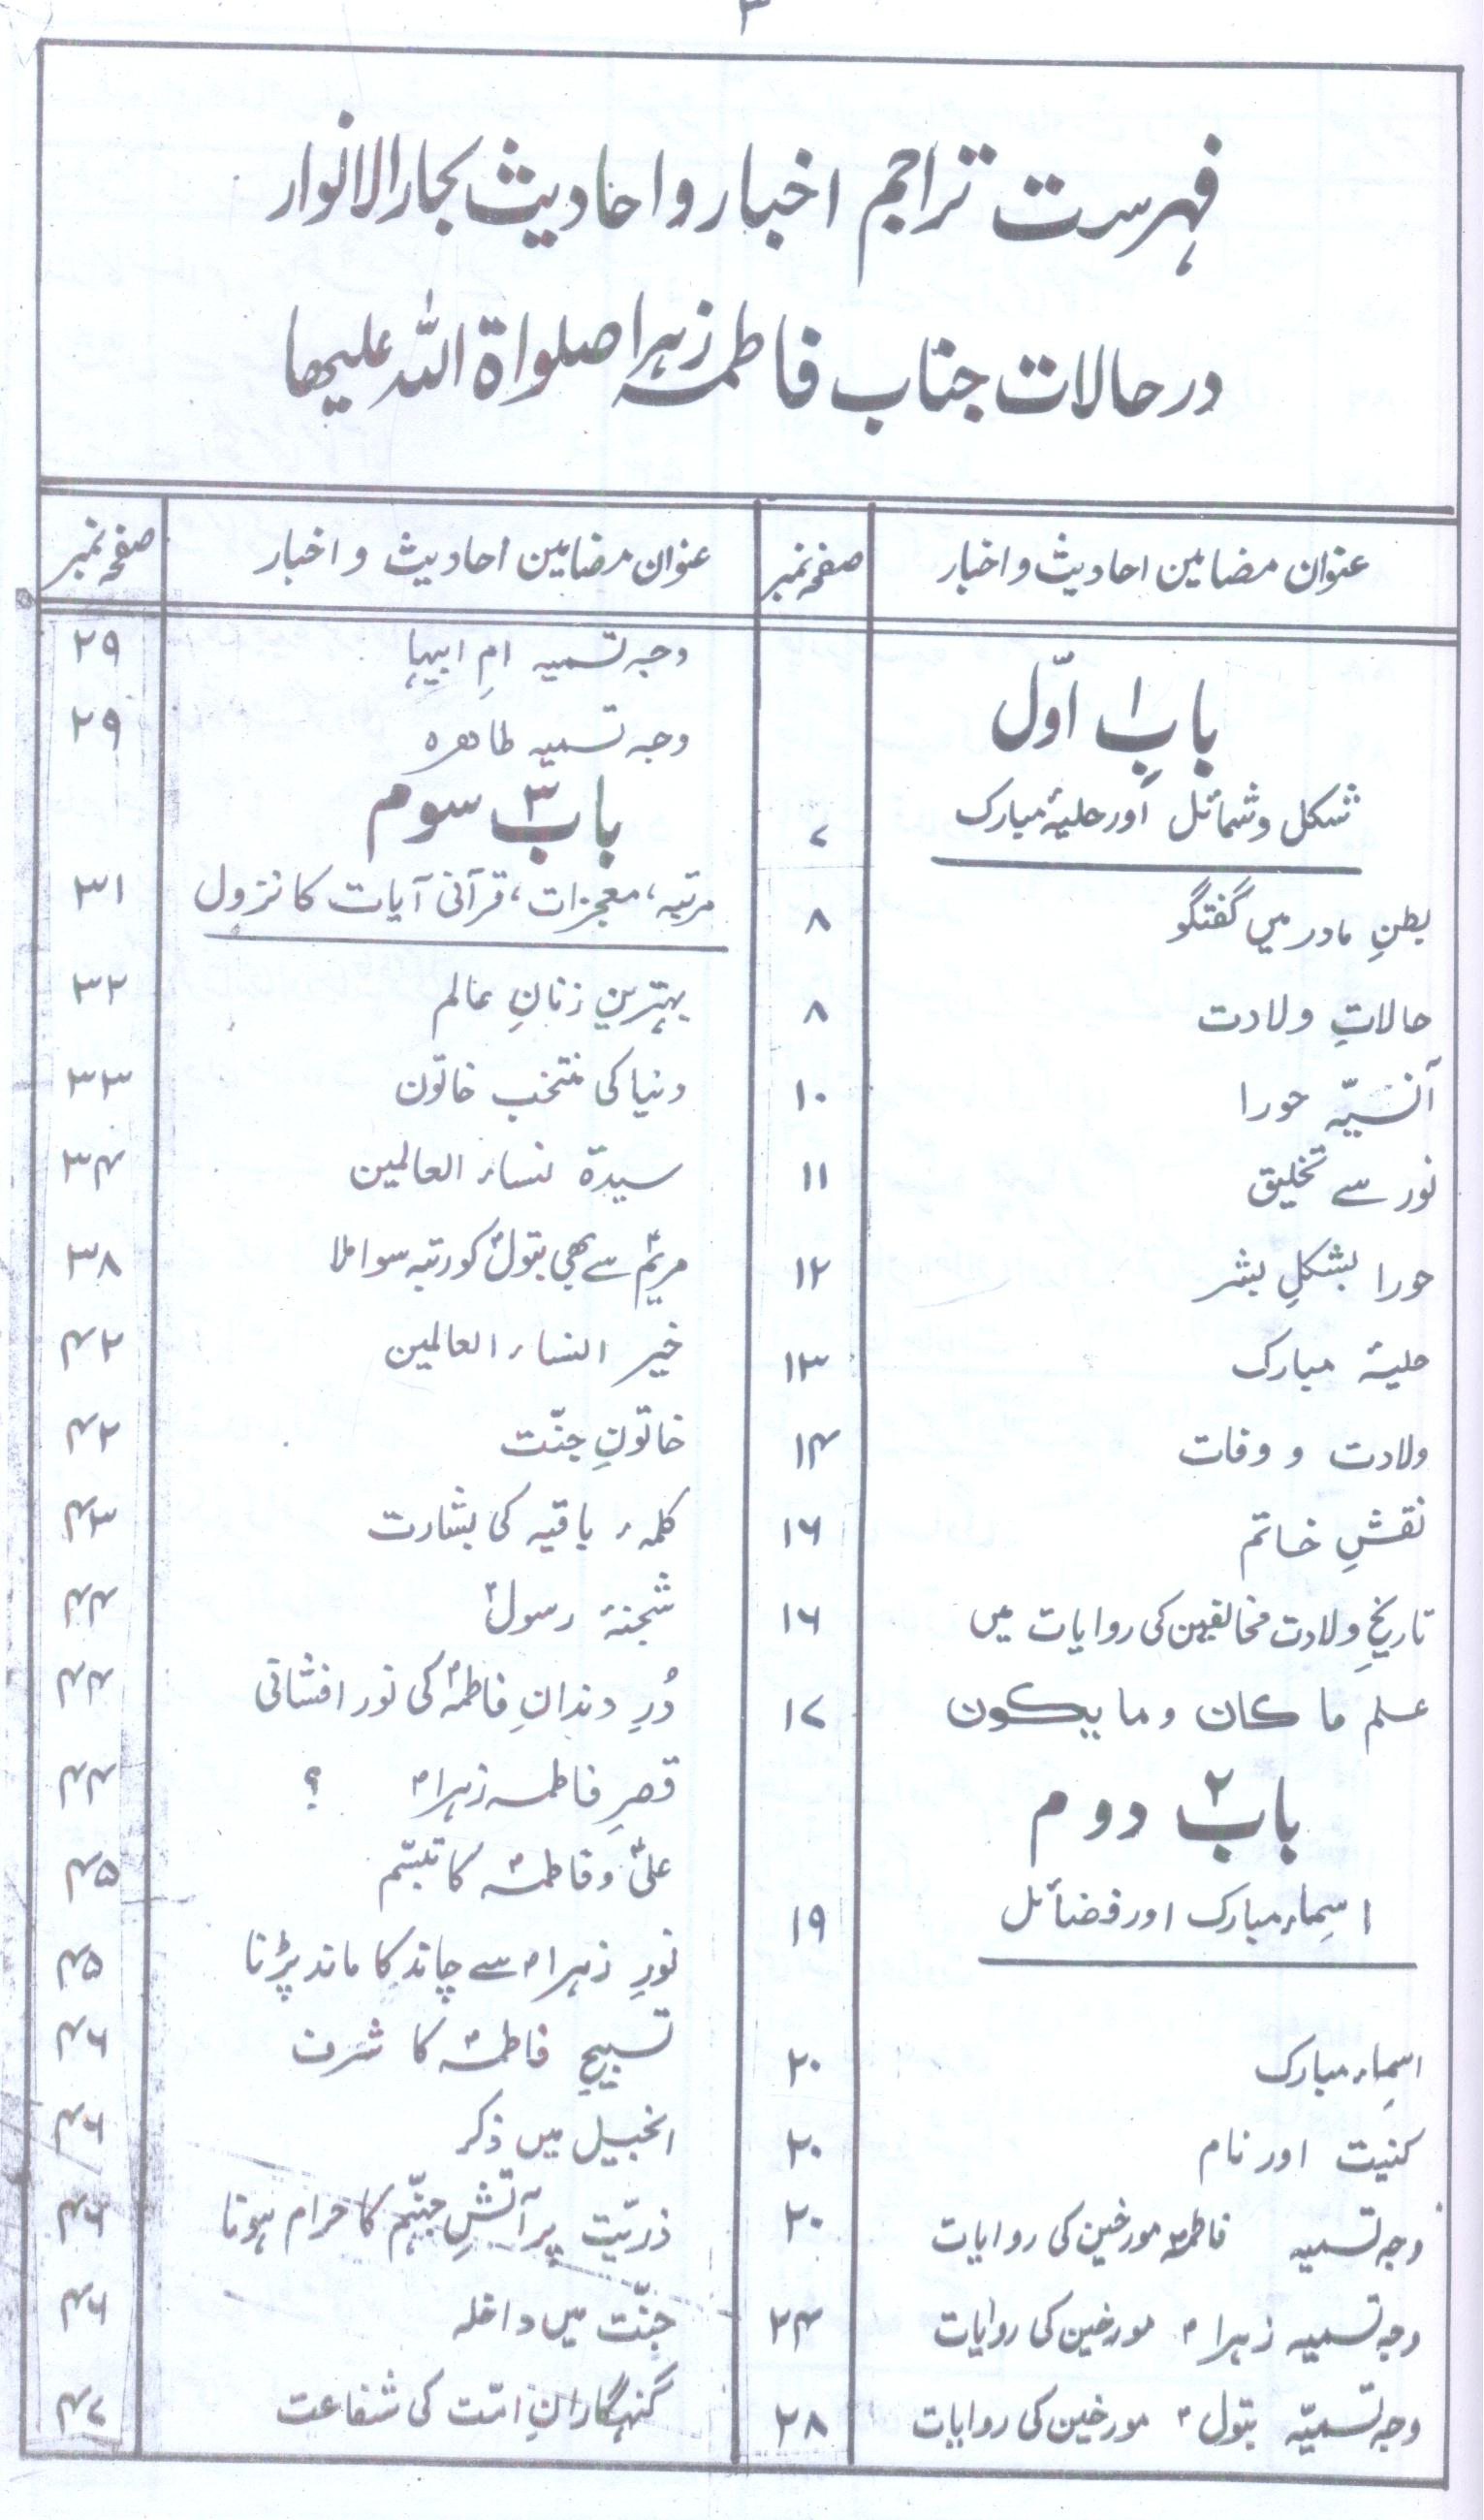 ۳
فہرست تراجم اخبار و احادیث بحار الانوار
در حالات جناب فاطمہ زہرا صلواۃ اللہ علیہا
عنوان مضامین احادیث و اخبار صفحہ نمبر
باب ۱ اوّل
شکل و شمائل اور حلیۂ مبارک ۷
بطنِ مادر میں گفتگو ۸
حالاتِ ولادت ۸
آنسیّہ حورا ۱۰
نور سے تخلیق ۱۱
حورا بشکلِ بشر ۱۲
حلیۂ مبارک ۱۳
ولادت و وفات ۱۴
نقشِ خاتم ۱۶
تاریخِ ولادت مخالفین کی روایات میں ۱۶
علم ما کان وما یکون ۱۷
باب ۲ دوم
اسماء مبارک اور فضائل ۱۹
اسماء مبارک ۲۰
کنیت اور نام ۲۰
وجہ تسمیہ فاطمہؑ مورخین کی روایات ۲۰
وجہ تسمیہ زہراؑ مورخین کی روایات ۲۴
وجہ تسمیّہ بتولؑ مورخین کی روایات ۲۸
عنوان مضامین احادیث و اخبار صفحہ نمبر
وجہ تسمیہ امِ ابیہا ۲۹
وجہ تسمیہ طاہرہ ۲۹
باب ۳ سوم
مرتبہ، معجزات، قرآنی آیات کا نزول ۳۱
بہترین زنانِ عالم ۳۲
دنیا کی منتخب خاتون ۳۳
سیدۃ نساء العالمین ۳۴
مریمؑ سے بھی بتولؑ کو رتبہ سوا ملا ۳۸
خیر النساء العالمین ۴۲
خاتونِ جنّت ۴۲
کلمہء باقیہ کی بشارت ۴۳
شجنۂ رسولؐ ۴۴
دُرِ دندانِ فاطمہؑ کی نور افشانی ۴۴
قصرِ فاطمہ زہراؑ ؟ ۴۴
علیؑ و فاطمہؑ کا تبسّم ۴۵
نورِ زہراؑ سے چاند کا ماند پڑنا ۴۵
تسبیحِ فاطمہؑ کا شرف ۴۶
انجیل میں ذکر ۴۶
ذریّت پر آتشِ جہنّم کا حرام ہونا ۴۶
جنّت میں داخلہ ۴۶
گنہگارانِ امّت کی شفاعت ۴۷